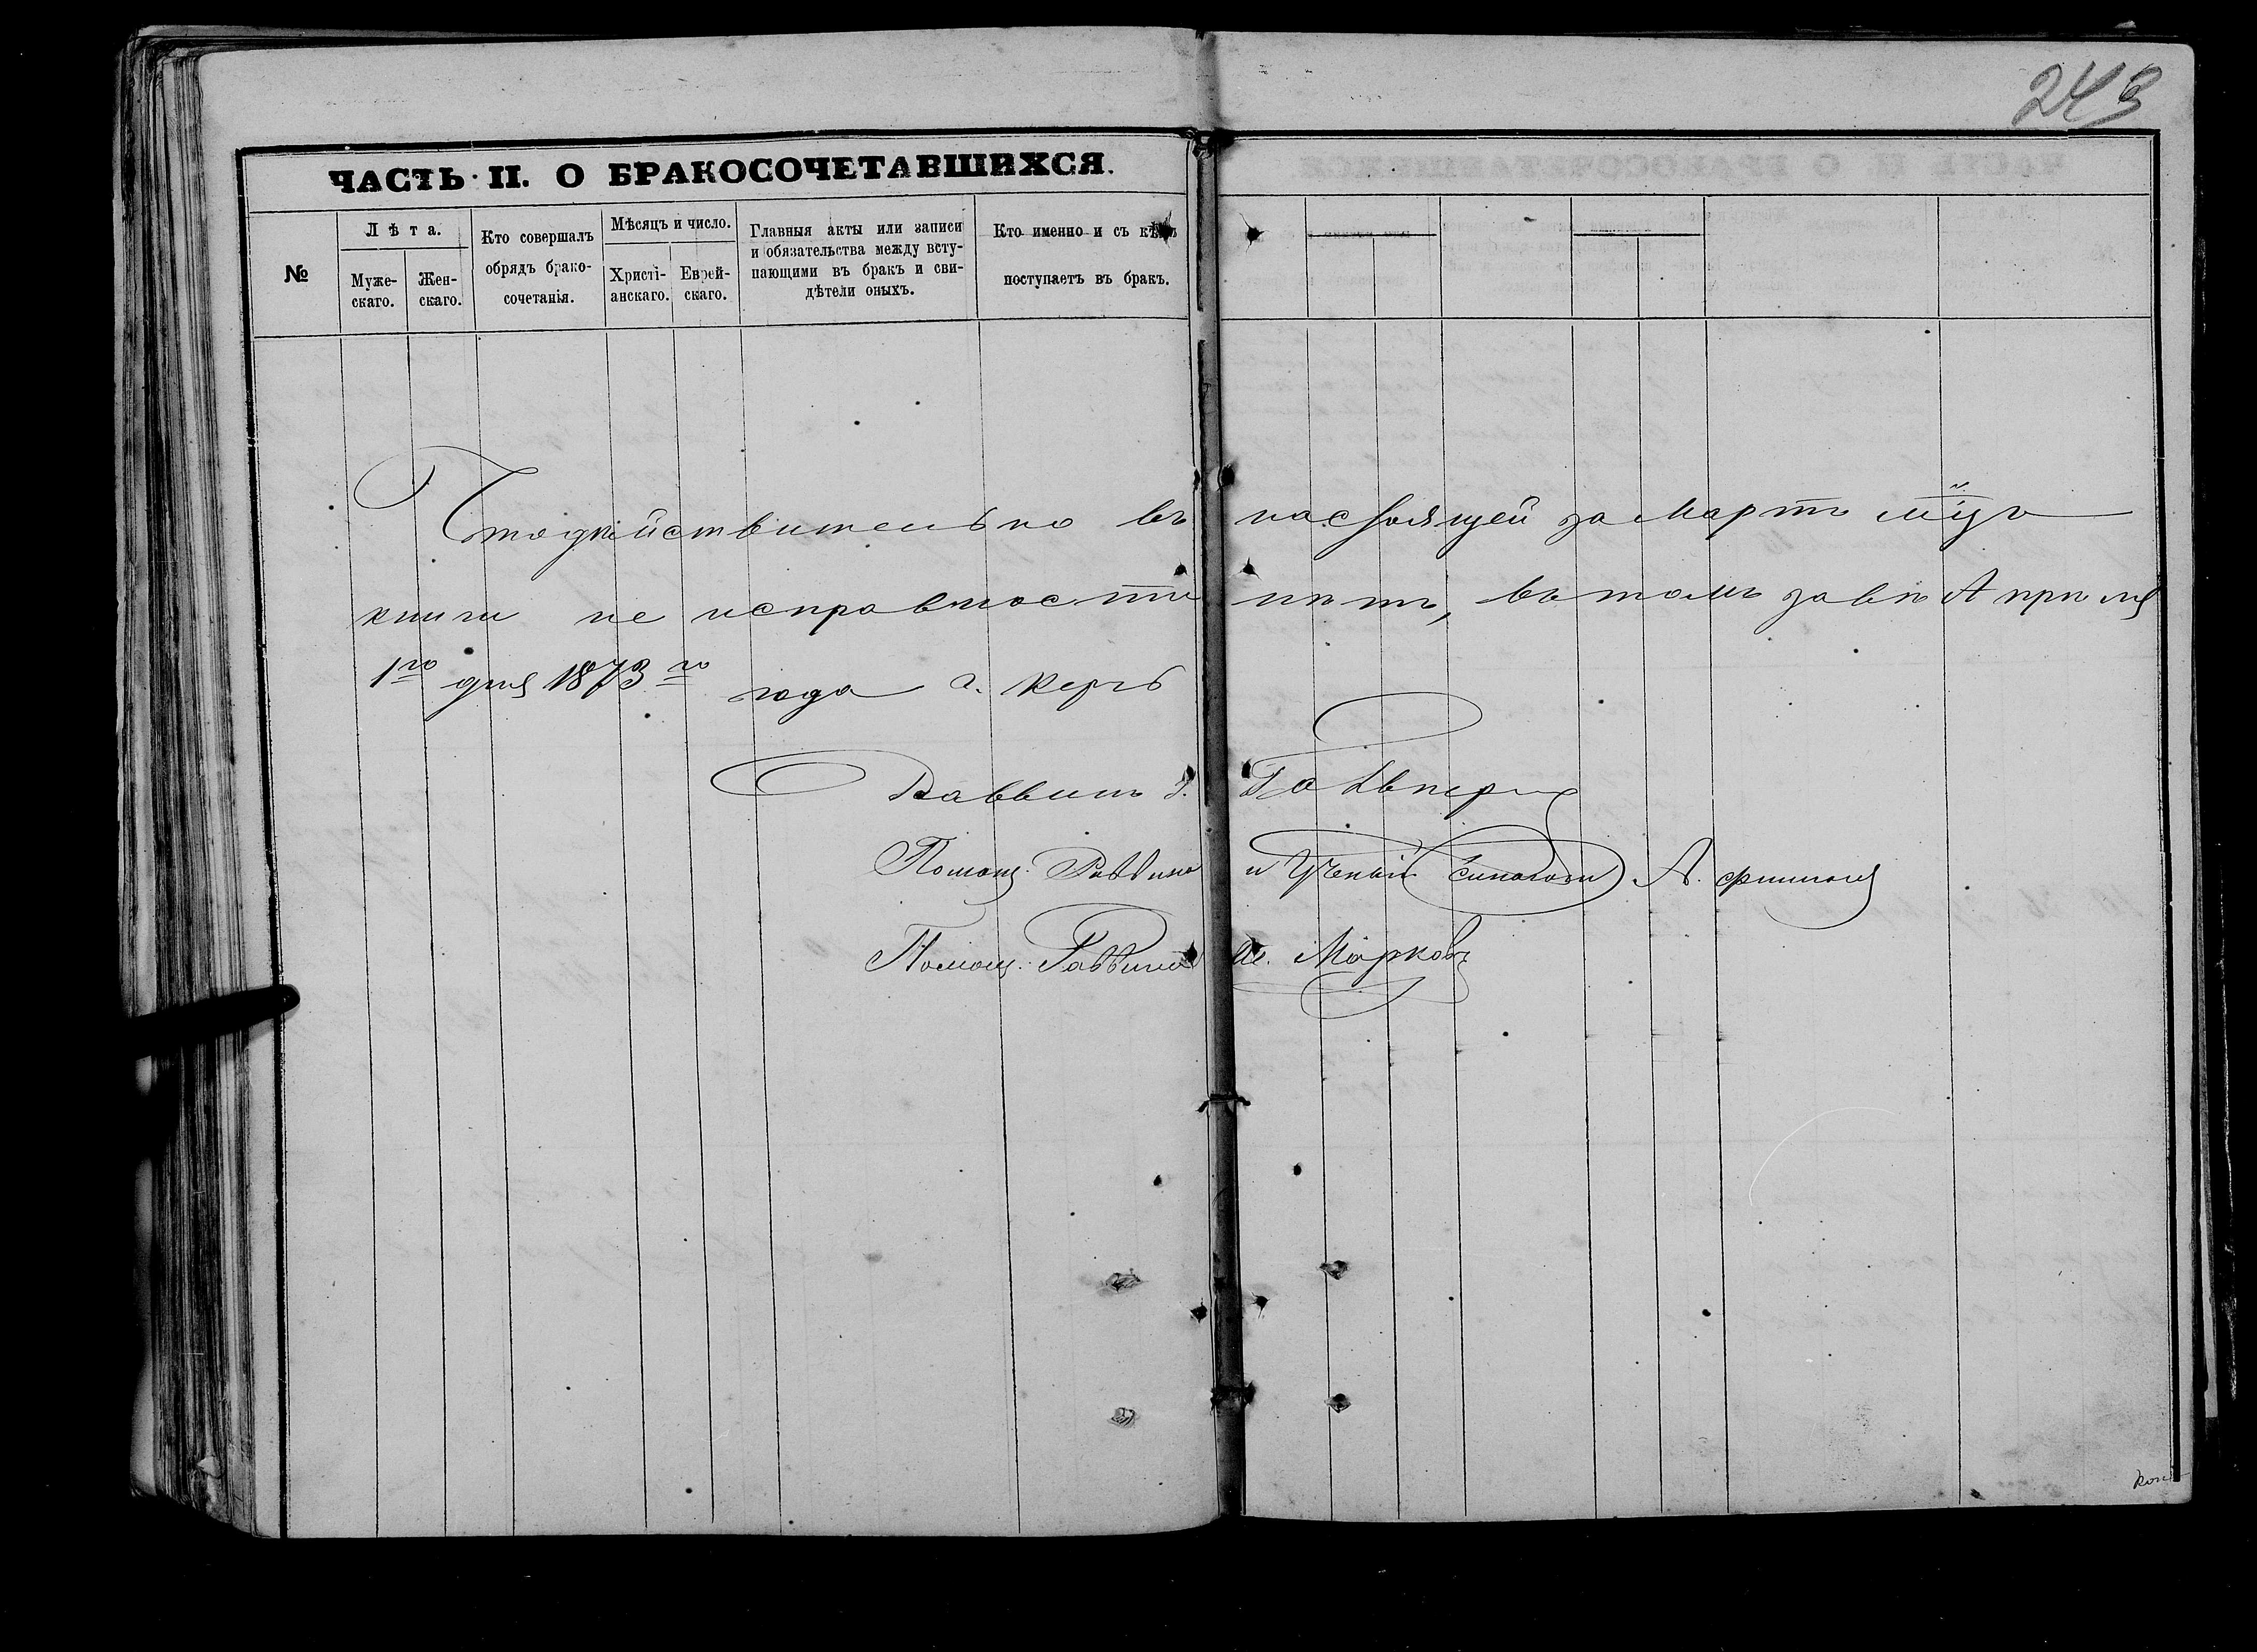 243
ЧАСТЬ II. О БРАКОСОЧЕТАВШИХСЯ.
№
Лѣта.
Муже-
скаго.
Жен-
скаго.
Кто совершалъ
обрядъ брако-
сочетанія.
Мѣсяцъ и число.
Христі-
анскаго.
Еврей-
скаго.
Главныя акты или записи
и обязательства между всту-
пающими въ бракъ и сви-
дѣтели оныхъ.
Кто именно и съ кѣмъ
поступаетъ въ бракъ.
Что дѣйствительно въ настоящей за Мартъ м̃цъ
книги не исправности нѣтъ, въ томъ завѣ Апрѣля
1го дня 1873го года г. Керчь
Раввинъ
Помощ. Раввина и Ученый А.
Помощ. Раввина М. Марковъ